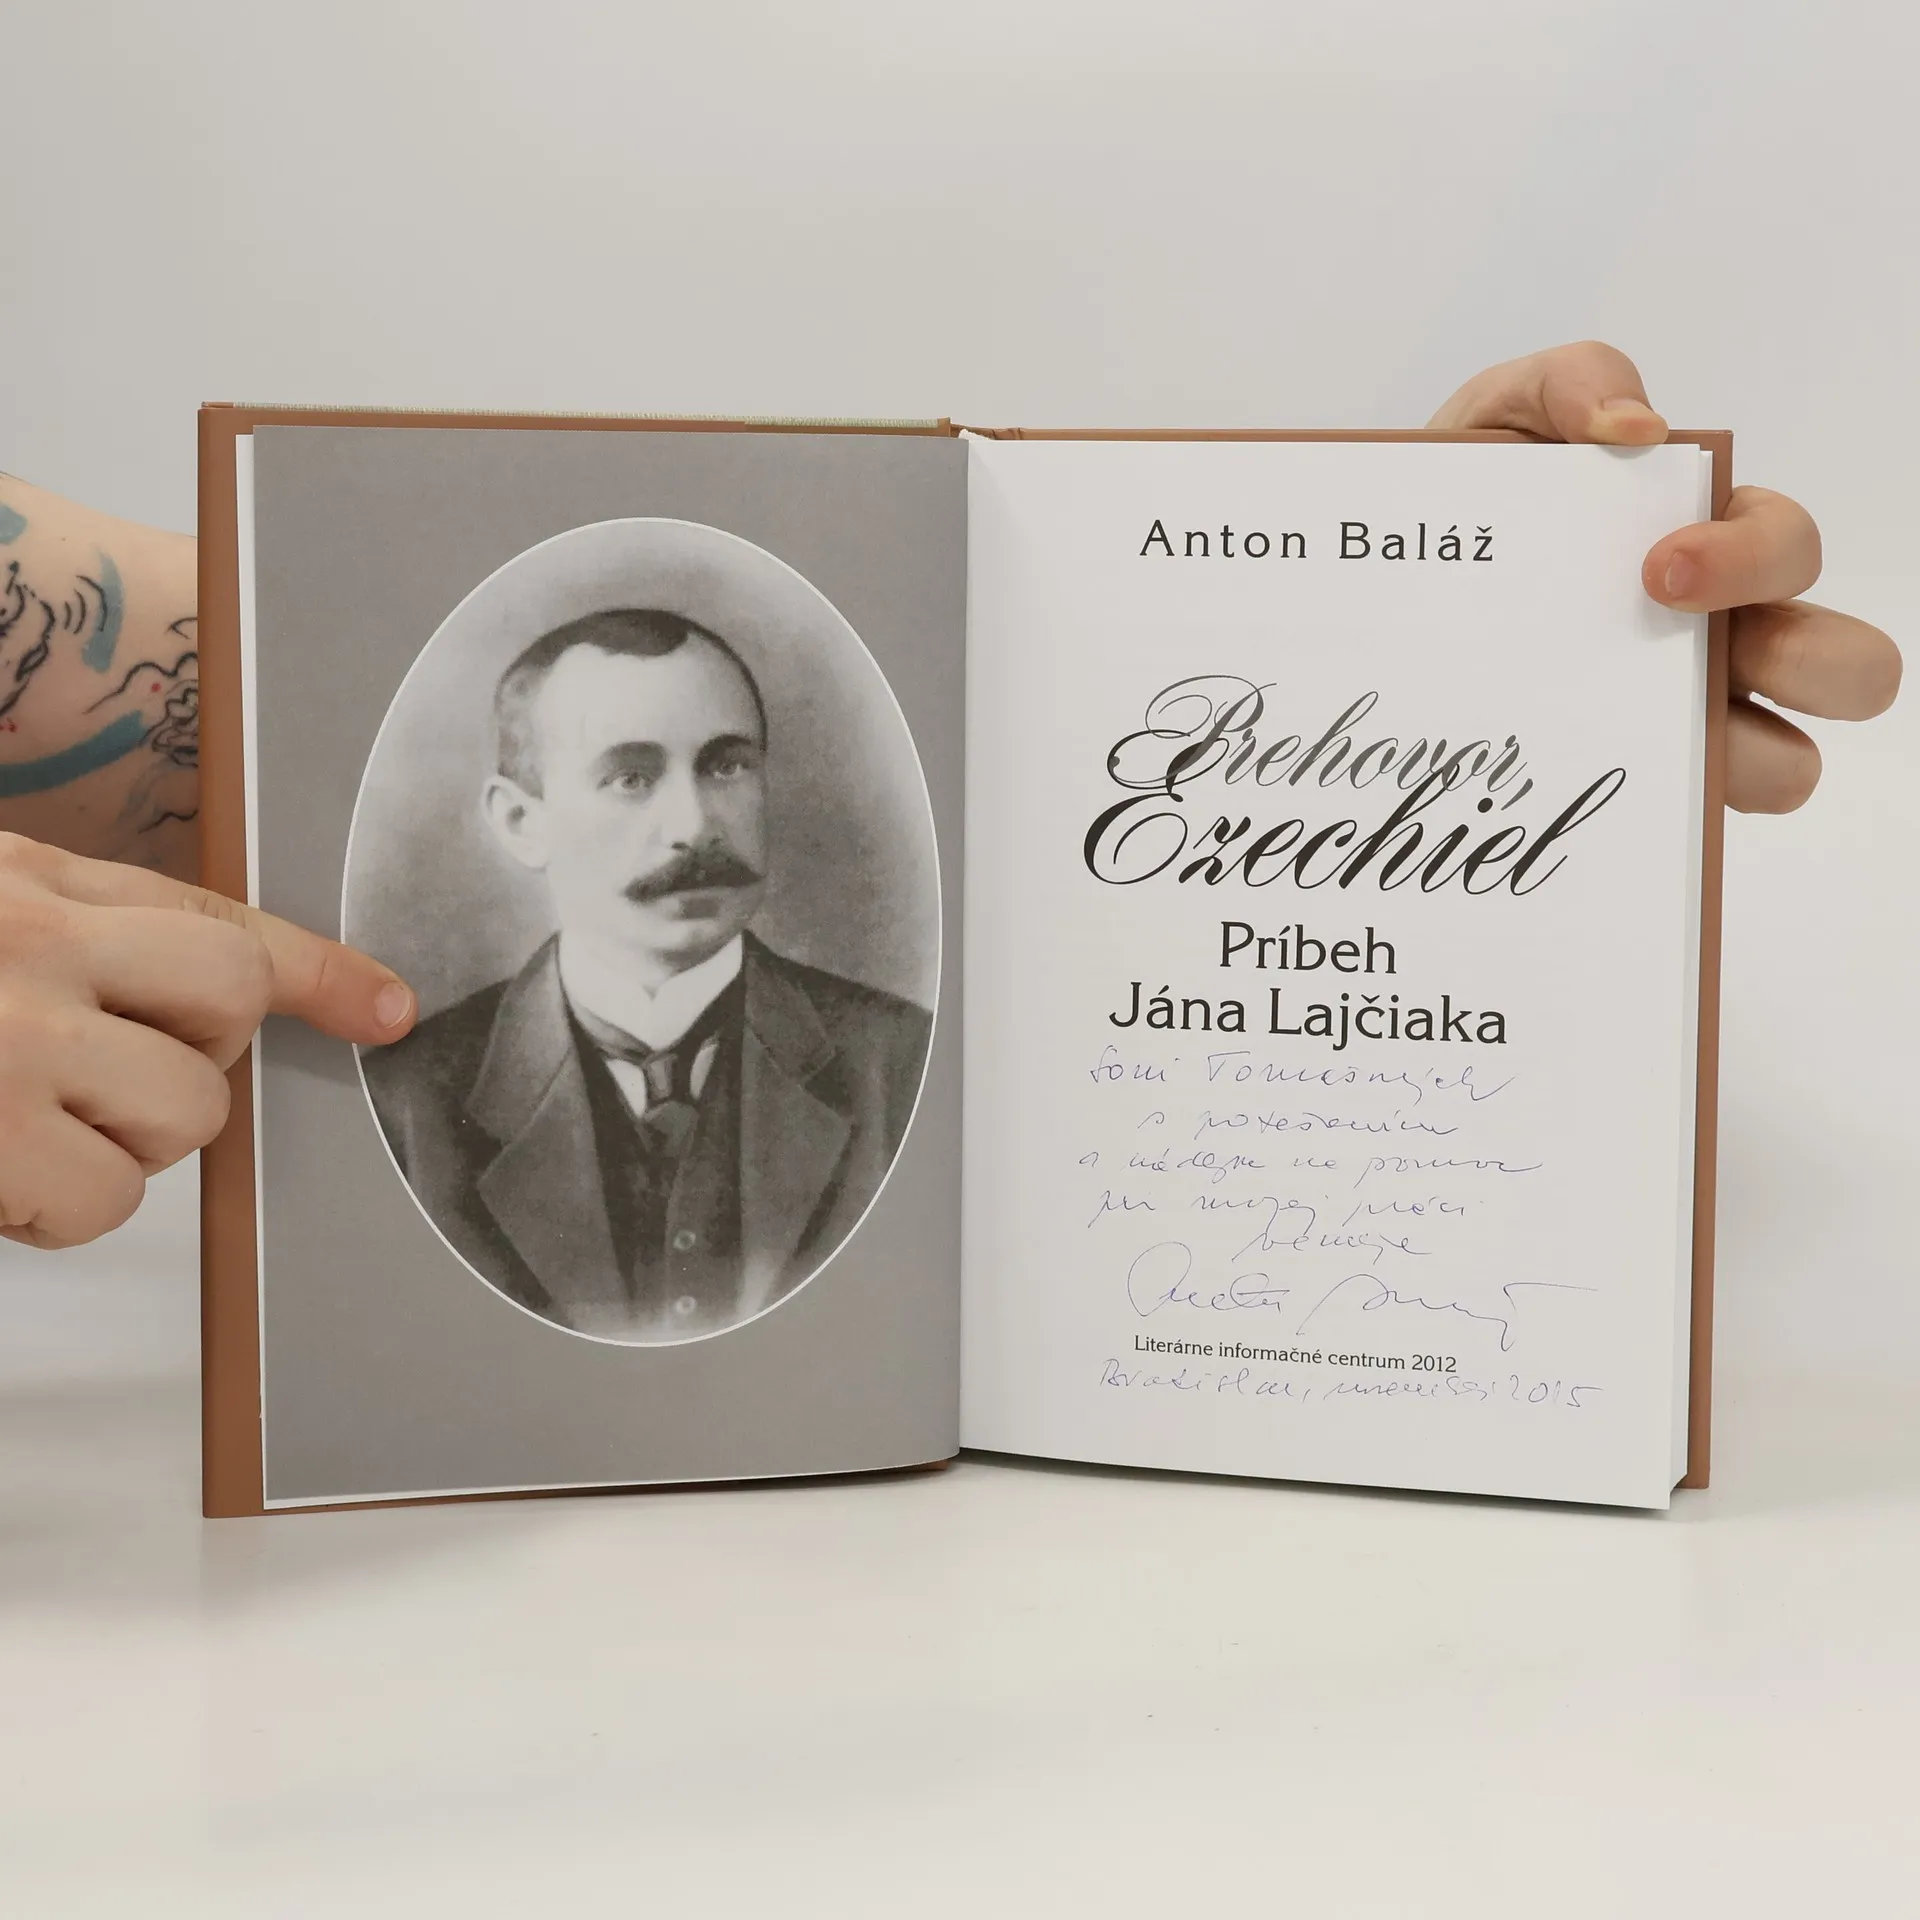 Anton Baláž
Prehovor,
Ezechiel
Príbeh
Jána Lajčiaka
Soni Tomašných
s potešením
a nádejou na pomoc
pri mojej práci
venuje
Literárne informačné centrum 2012
Bratislava, 2015